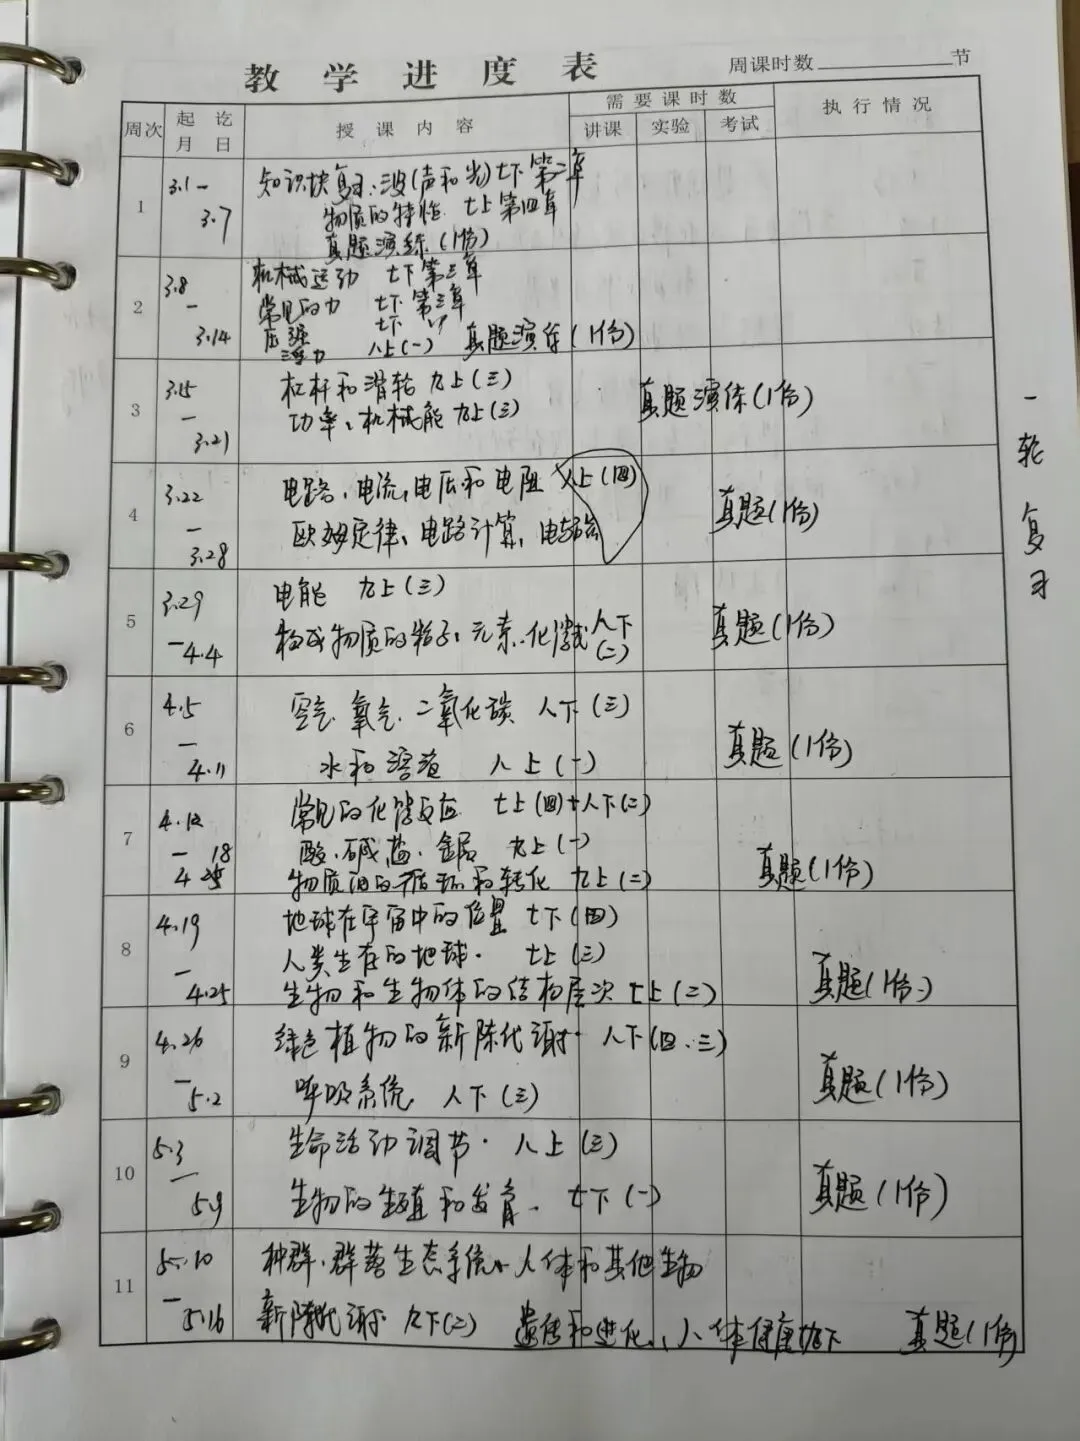 教学进度表
周课时数 节
周次 起讫月日 授课内容 需要课时数 执行情况
讲课 实验 考试
1 3.1- 3.7 知识块复习:波(声和光)七下第二章
物质的特性 七上第四章
真题演练(1份)
2 3.8 - 3.14 机械运动 七下第三章
常见的力 七下第三章
压强 七下 〃
浮力 八上(一) 真题演练(1份)
3 3.15 - 3.21 杠杆和滑轮 九上(三)
功率、机械能 九上(三) 真题演练(1份)
4 3.22 - 3.28 电路,电流,电压和电阻 八上(四)
欧姆定律、电路计算, 真题(1份)
5 3.29 -4.4 电能 九上(三)
构成物质的粒子、元素.化学式 八下(二) 真题(1份)
6 4.5 - 4.11 空气.氧气.二氧化碳 八下(三)
水和溶液 八上(一) 真题(1份)
7 4.12 - 18 4.25 常见的化学反应 七上(四)+八下(二)
酸.碱.盐.金属 九上(一)
物质的循环和转化 九上(二) 真题(1份)
8 4.19 - 4.25 地球在宇宙中的位置 七下(四)
人类生存的地球. 七上(三)
生物和生物体的结构层次 七上(二) 真题(1份.)
9 4.26 - 5.2 绿色植物的新陈代谢 八下(四、三)
呼吸系统 八下(三) 真题(1份)
10 5.3 - 5.9 生命活动调节. 八上(三)
生物的生殖和发育. 七下(一) 真题(1份)
11 5.10 - 5.16 种群.群落生态系统、人体和其他生物
新陈代谢 九下(二) 遗传和进化.,人体健康九下 真题(1份)
一轮复习